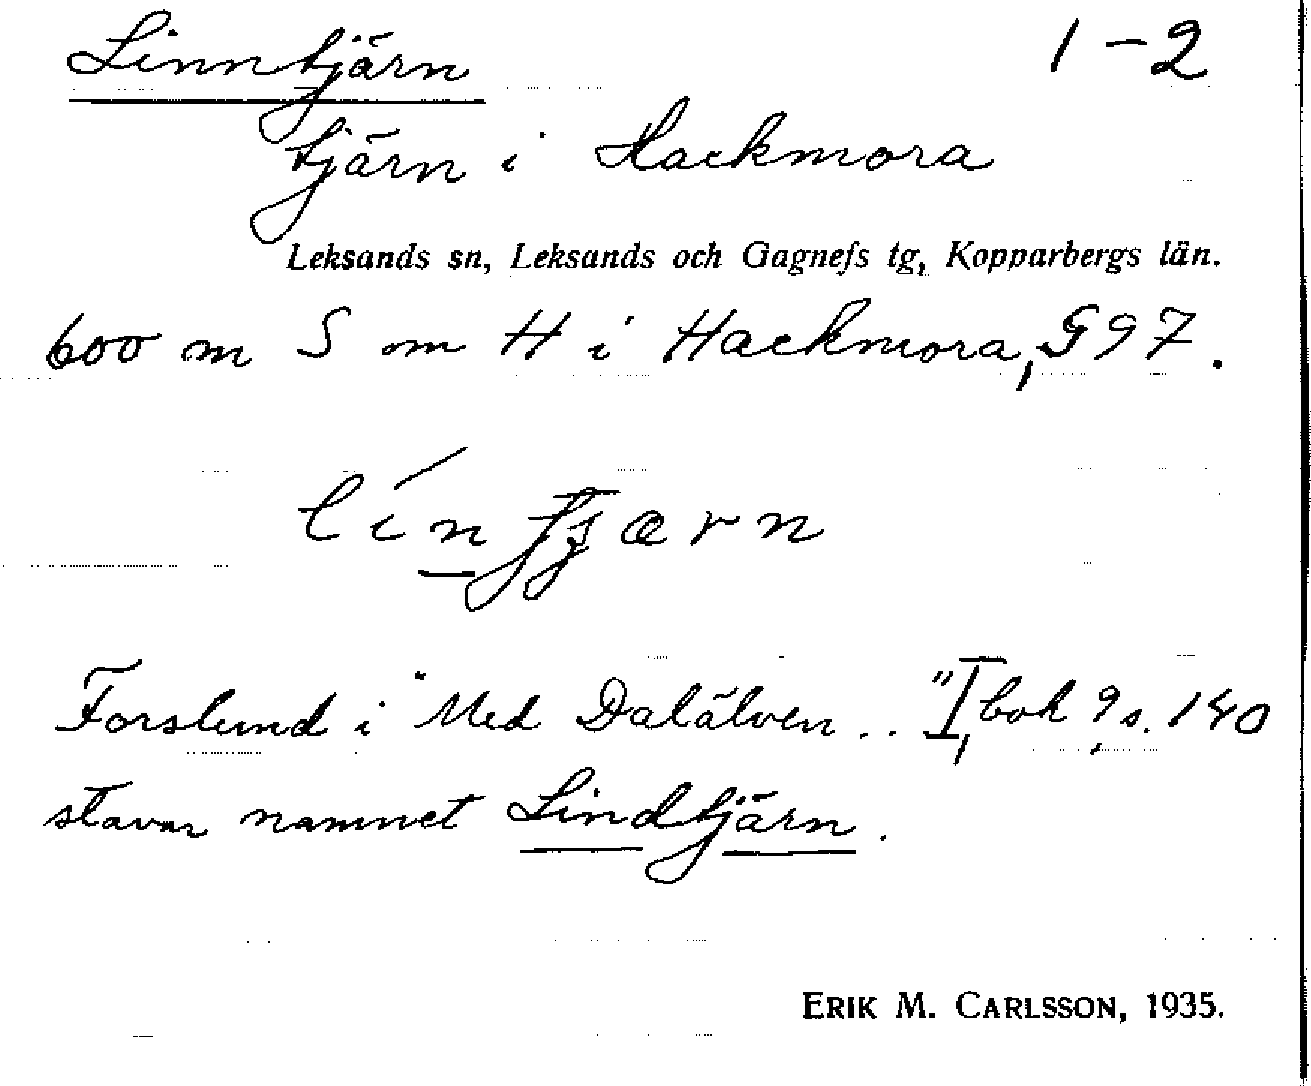 Linntjärn 1-2
tjärn i Hackmora
Leksands sn, Leksands och Gagnefs tg, Kopparbergs län.
600 m S om H i Hackmora, G97.
líntjærn
Forslund i "Med Dalälven.. " I, bok 9, s. 140
stavar namnet Lindtjärn.
ERIK M. CARLSSON, 1935.